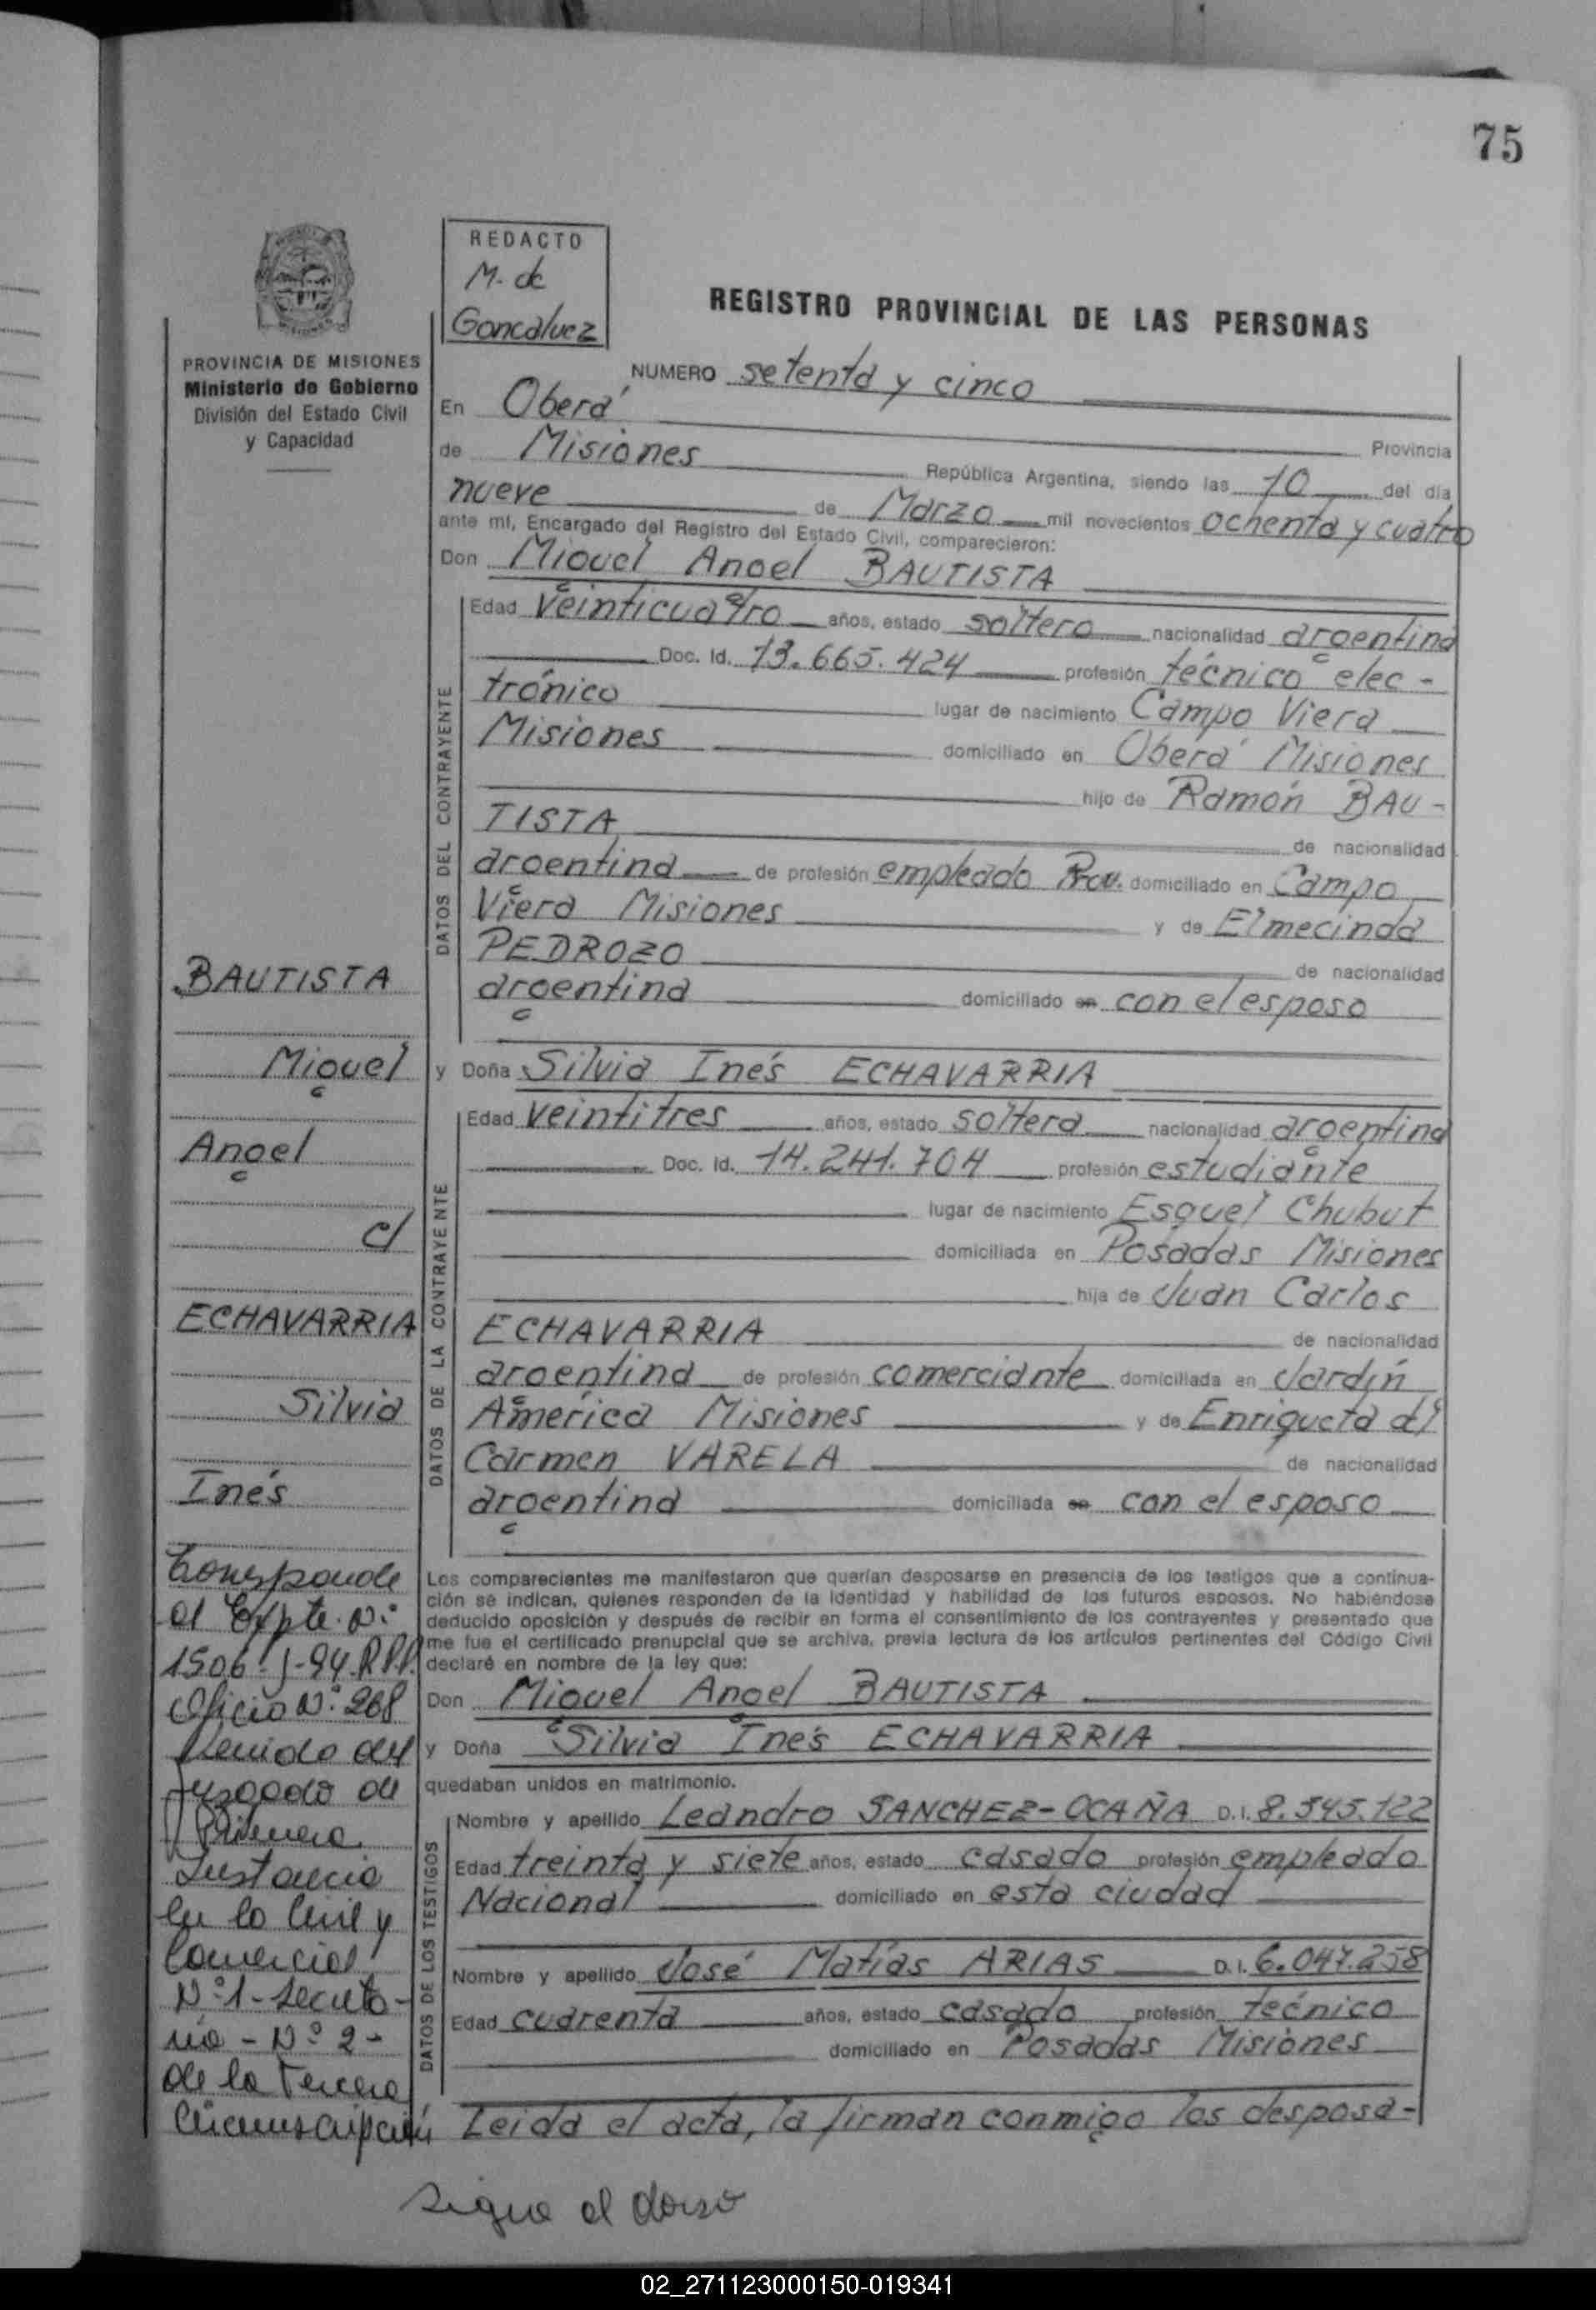 75
REDACTO
M. de
Goncalvez
REGISTRO PROVINCIAL DE LAS PERSONAS
PROVINCIA DE MISIONES
Ministerio de Gobierno
División del Estado Civil
y Capacidad
NUMERO setenta y cinco
En Oberá Provincia
de Misiones República Argentina, siendo las 10 del día
nueve de Marzo mil novecientos ochenta y cuatro
ante mí, Encargado del Registro del Estado Civil, comparecieron:
Don Miguel Angel BAUTISTA
DATOS DEL CONTRAYENTE
Edad veinticuatro años, estado soltero nacionalidad argentina
Doc. Id. 13.665.424 profesión técnico elec-
trónico lugar de nacimiento Campo Viera
Misiones domiciliado en Oberá Misiones
hijo de Ramón BAU-
TISTA de nacionalidad
argentina de profesión empleado Prov. domiciliado en Campo
Viera Misiones y de Elmecinda
PEDROZO de nacionalidad
argentina domiciliado en con el esposo
y Doña Silvia Inés ECHAVARRIA
DATOS DE LA CONTRAYENTE
Edad veintitres años, estado soltera nacionalidad argentina
Doc. Id. 14.241.704 profesión estudiante
lugar de nacimiento Esquel Chubut
domiciliada en Posadas Misiones
hija de Juan Carlos
ECHAVARRIA de nacionalidad
argentina de profesión comerciante domiciliada en Jardín
América Misiones y de Enriqueta del
Carmen VARELA de nacionalidad
argentina domiciliada en con el esposo
Los comparecientes me manifestaron que querían desposarse en presencia de los testigos que a continua-
ción se indican, quienes responden de la identidad y habilidad de los futuros esposos. No habiéndose
deducido oposición y después de recibir en forma el consentimiento de los contrayentes y presentado que
me fue el certificado prenupcial que se archiva, previa lectura de los artículos pertinentes del Código Civil
declaré en nombre de la ley que:
Don Miguel Angel BAUTISTA
y Doña Silvia Inés ECHAVARRIA
quedaban unidos en matrimonio.
DATOS DE LOS TESTIGOS
Nombre y apellido Leandro SANCHEZ-OCAÑA D.I. 8.545.122
Edad treinta y siete años, estado casado profesión empleado
Nacional domiciliado en esta ciudad
Nombre y apellido José Matías ARIAS D.I. 6.047.258
Edad cuarenta años, estado casado profesión técnico
domiciliado en Posadas Misiones
Leida el acta, la firman conmigo los desposa-
BAUTISTA
Miguel
Angel
c/
ECHAVARRIA
Silvia
Inés
Corresponde
al Expte. Nº
1506-J-94-R.P.P.
Oficio Nº 268
venido del
Juzgado de
Primera
Instancia
en lo Civil y
Comercial
Nº 1 - Secreta-
ria - Nº 2 -
de la Tercera
Circunscripción
Sigue al dorso
02_271123000150-019341